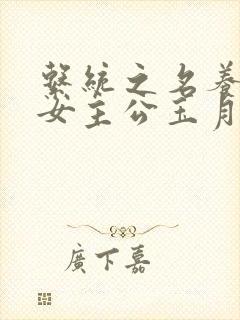 繫統之名養
女主公玉月
廣下嘉